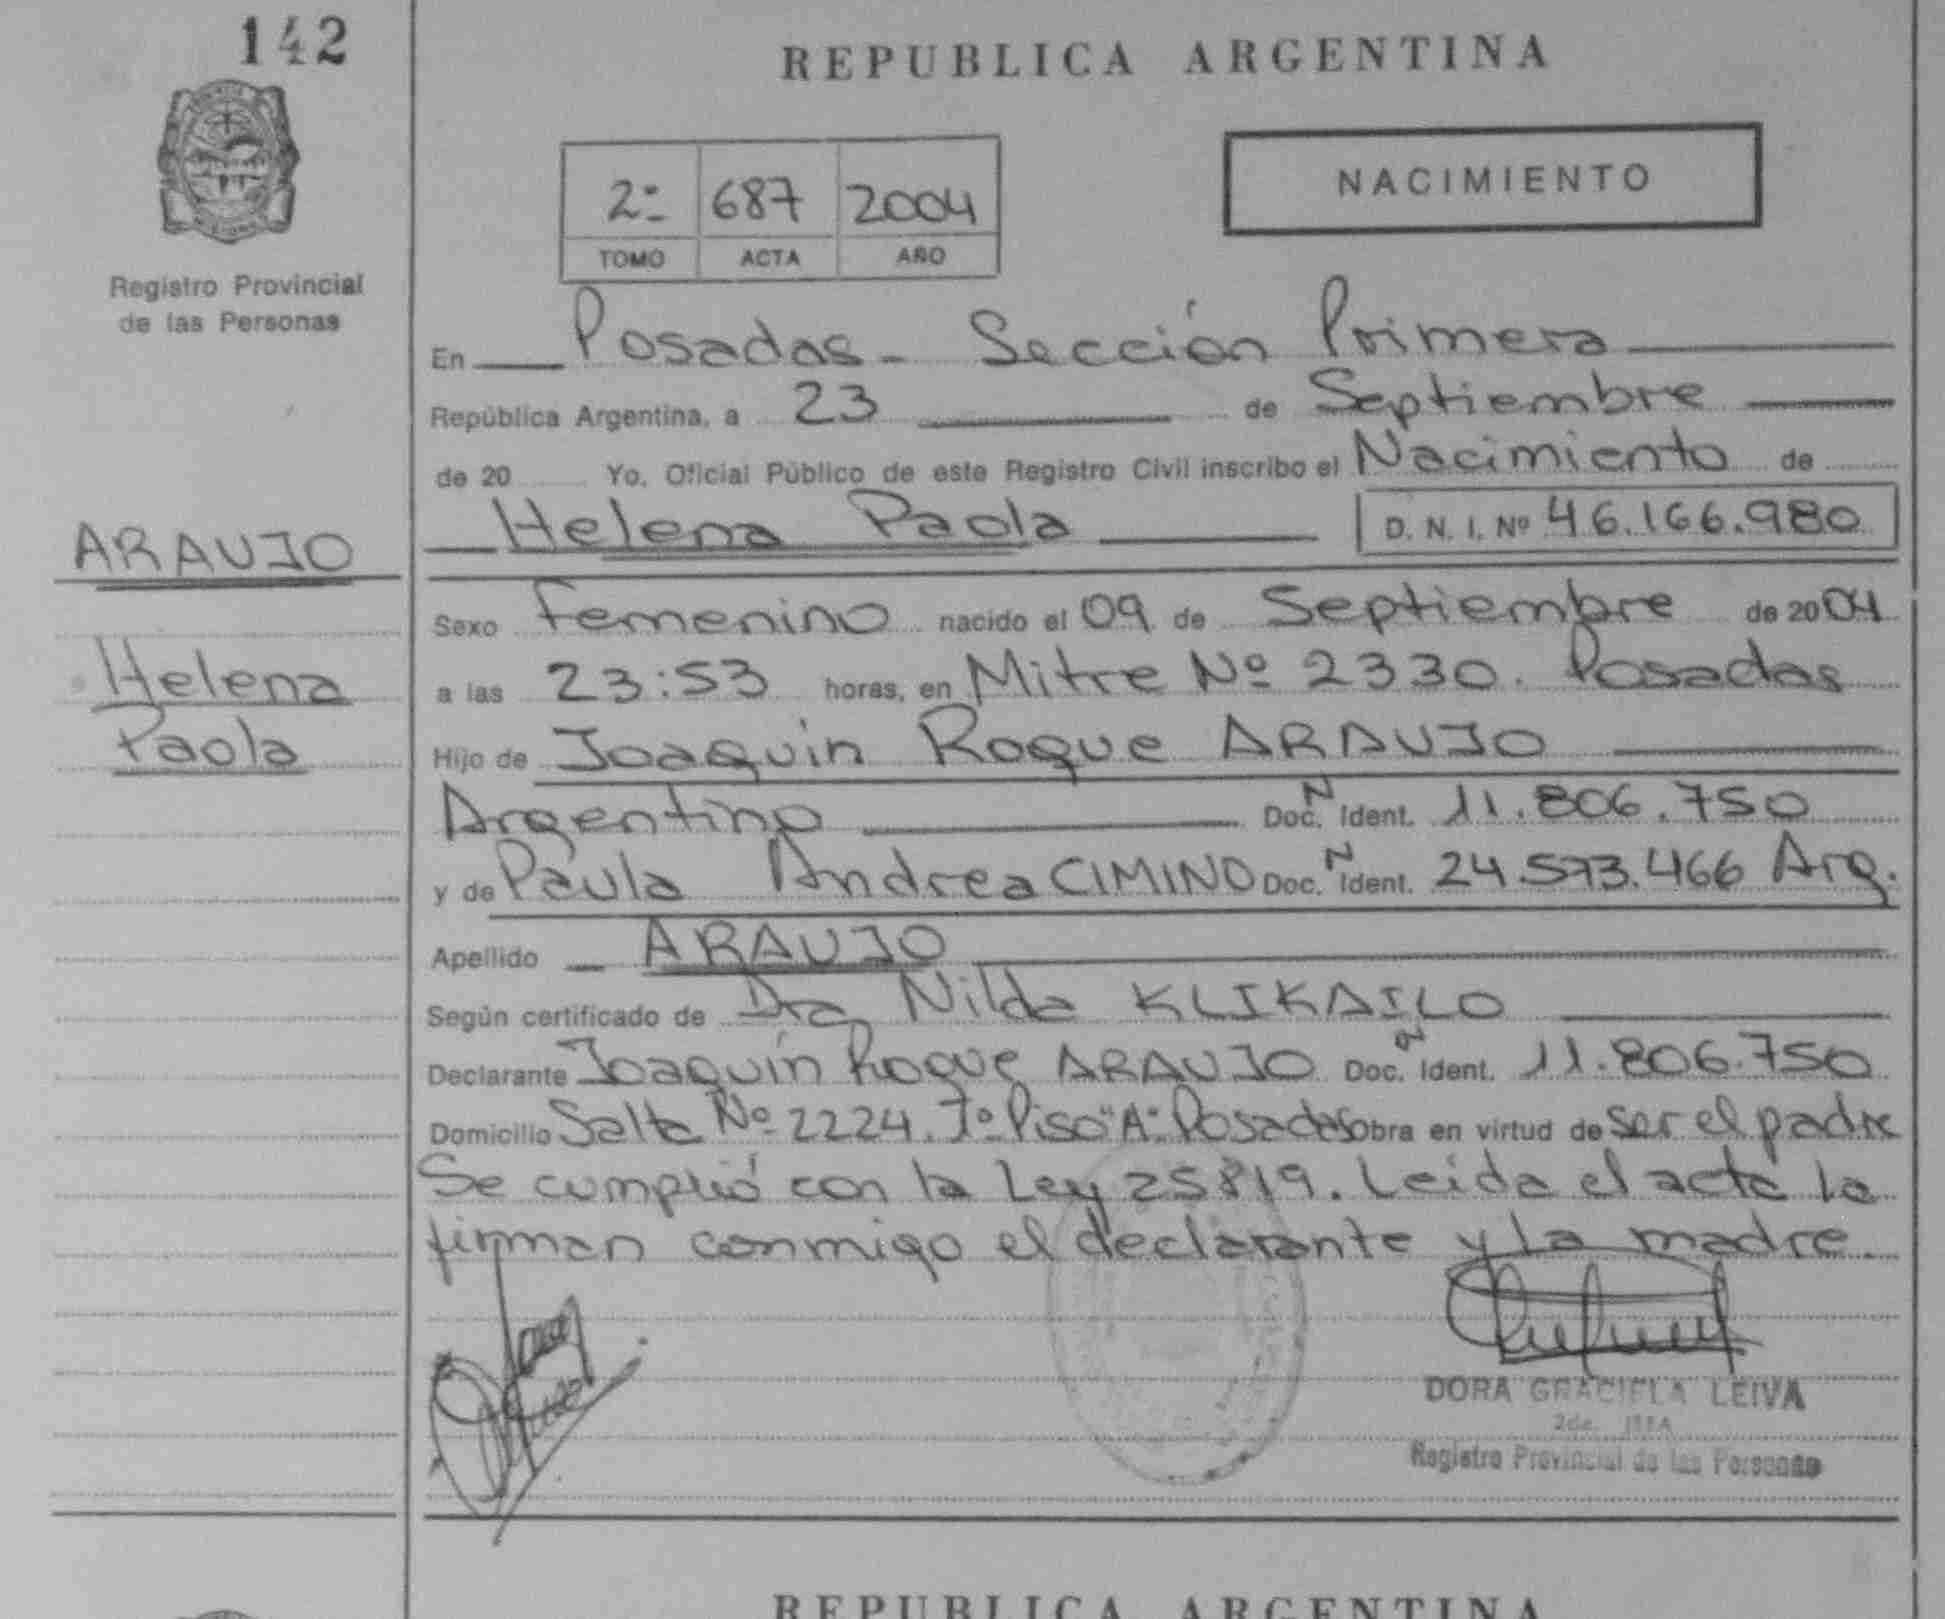 142
REPUBLICA ARGENTINA
NACIMIENTO
2º 687 2004
TOMO ACTA AÑO
Registro Provincial
de las Personas
En Posadas - Sección Primera
República Argentina, a 23 de Septiembre
de 20 Yo, Oficial Público de este Registro Civil inscribo el Nacimiento de
Helena Paola D. N. I. Nº 46.166.980
ARAUJO
Helena
Paola
Sexo femenino nacido el 09 de Septiembre de 2004
a las 23:53 horas, en Mitre Nº 2330. Posadas
Hijo de Joaquín Roque ARAUJO
Argentino Doc. N Ident. 11.806.750
y de Paula Andrea CIMINO Doc. N Ident. 24.573.466 Arg.
Apellido ARAUJO
Según certificado de Dra Nilda KLIKAILO
Declarante Joaquín Roque ARAUJO Doc. N Ident. 11.806.750
Domicilio Salta Nº 2224. 7º Piso "A" Posadas Obra en virtud de ser el padre
Se cumplió con la Ley 25819. Leida el acta la
firman conmigo el declarante y la madre.
DORA GRACIELA LEIVA
Registro Provincial de las Personas
REPUBLICA ARGENTINA